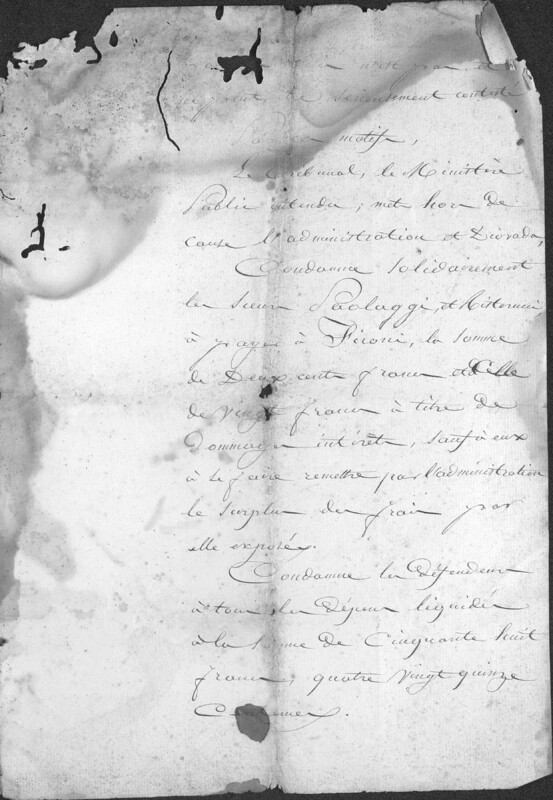 n'est pas
sérieusement contesté
Par ces motifs,
Le Tribunal, le Ministère
Public entendu; met hors de
cause l'administration et
Condamne solidairement
les sieurs Paolaggi, et
à payer à la somme
de Deux cents francs et Celle
de vingt francs à titre de
Dommages intérêts, sauf à eux
à se faire remettre par l'administration
le surplus des frais par
elle exposés.
Condamne les Défendeurs
à tous les Dépens liquidés
à la somme de Cinquante huit
francs, quatre vingt quinze
Centimes.